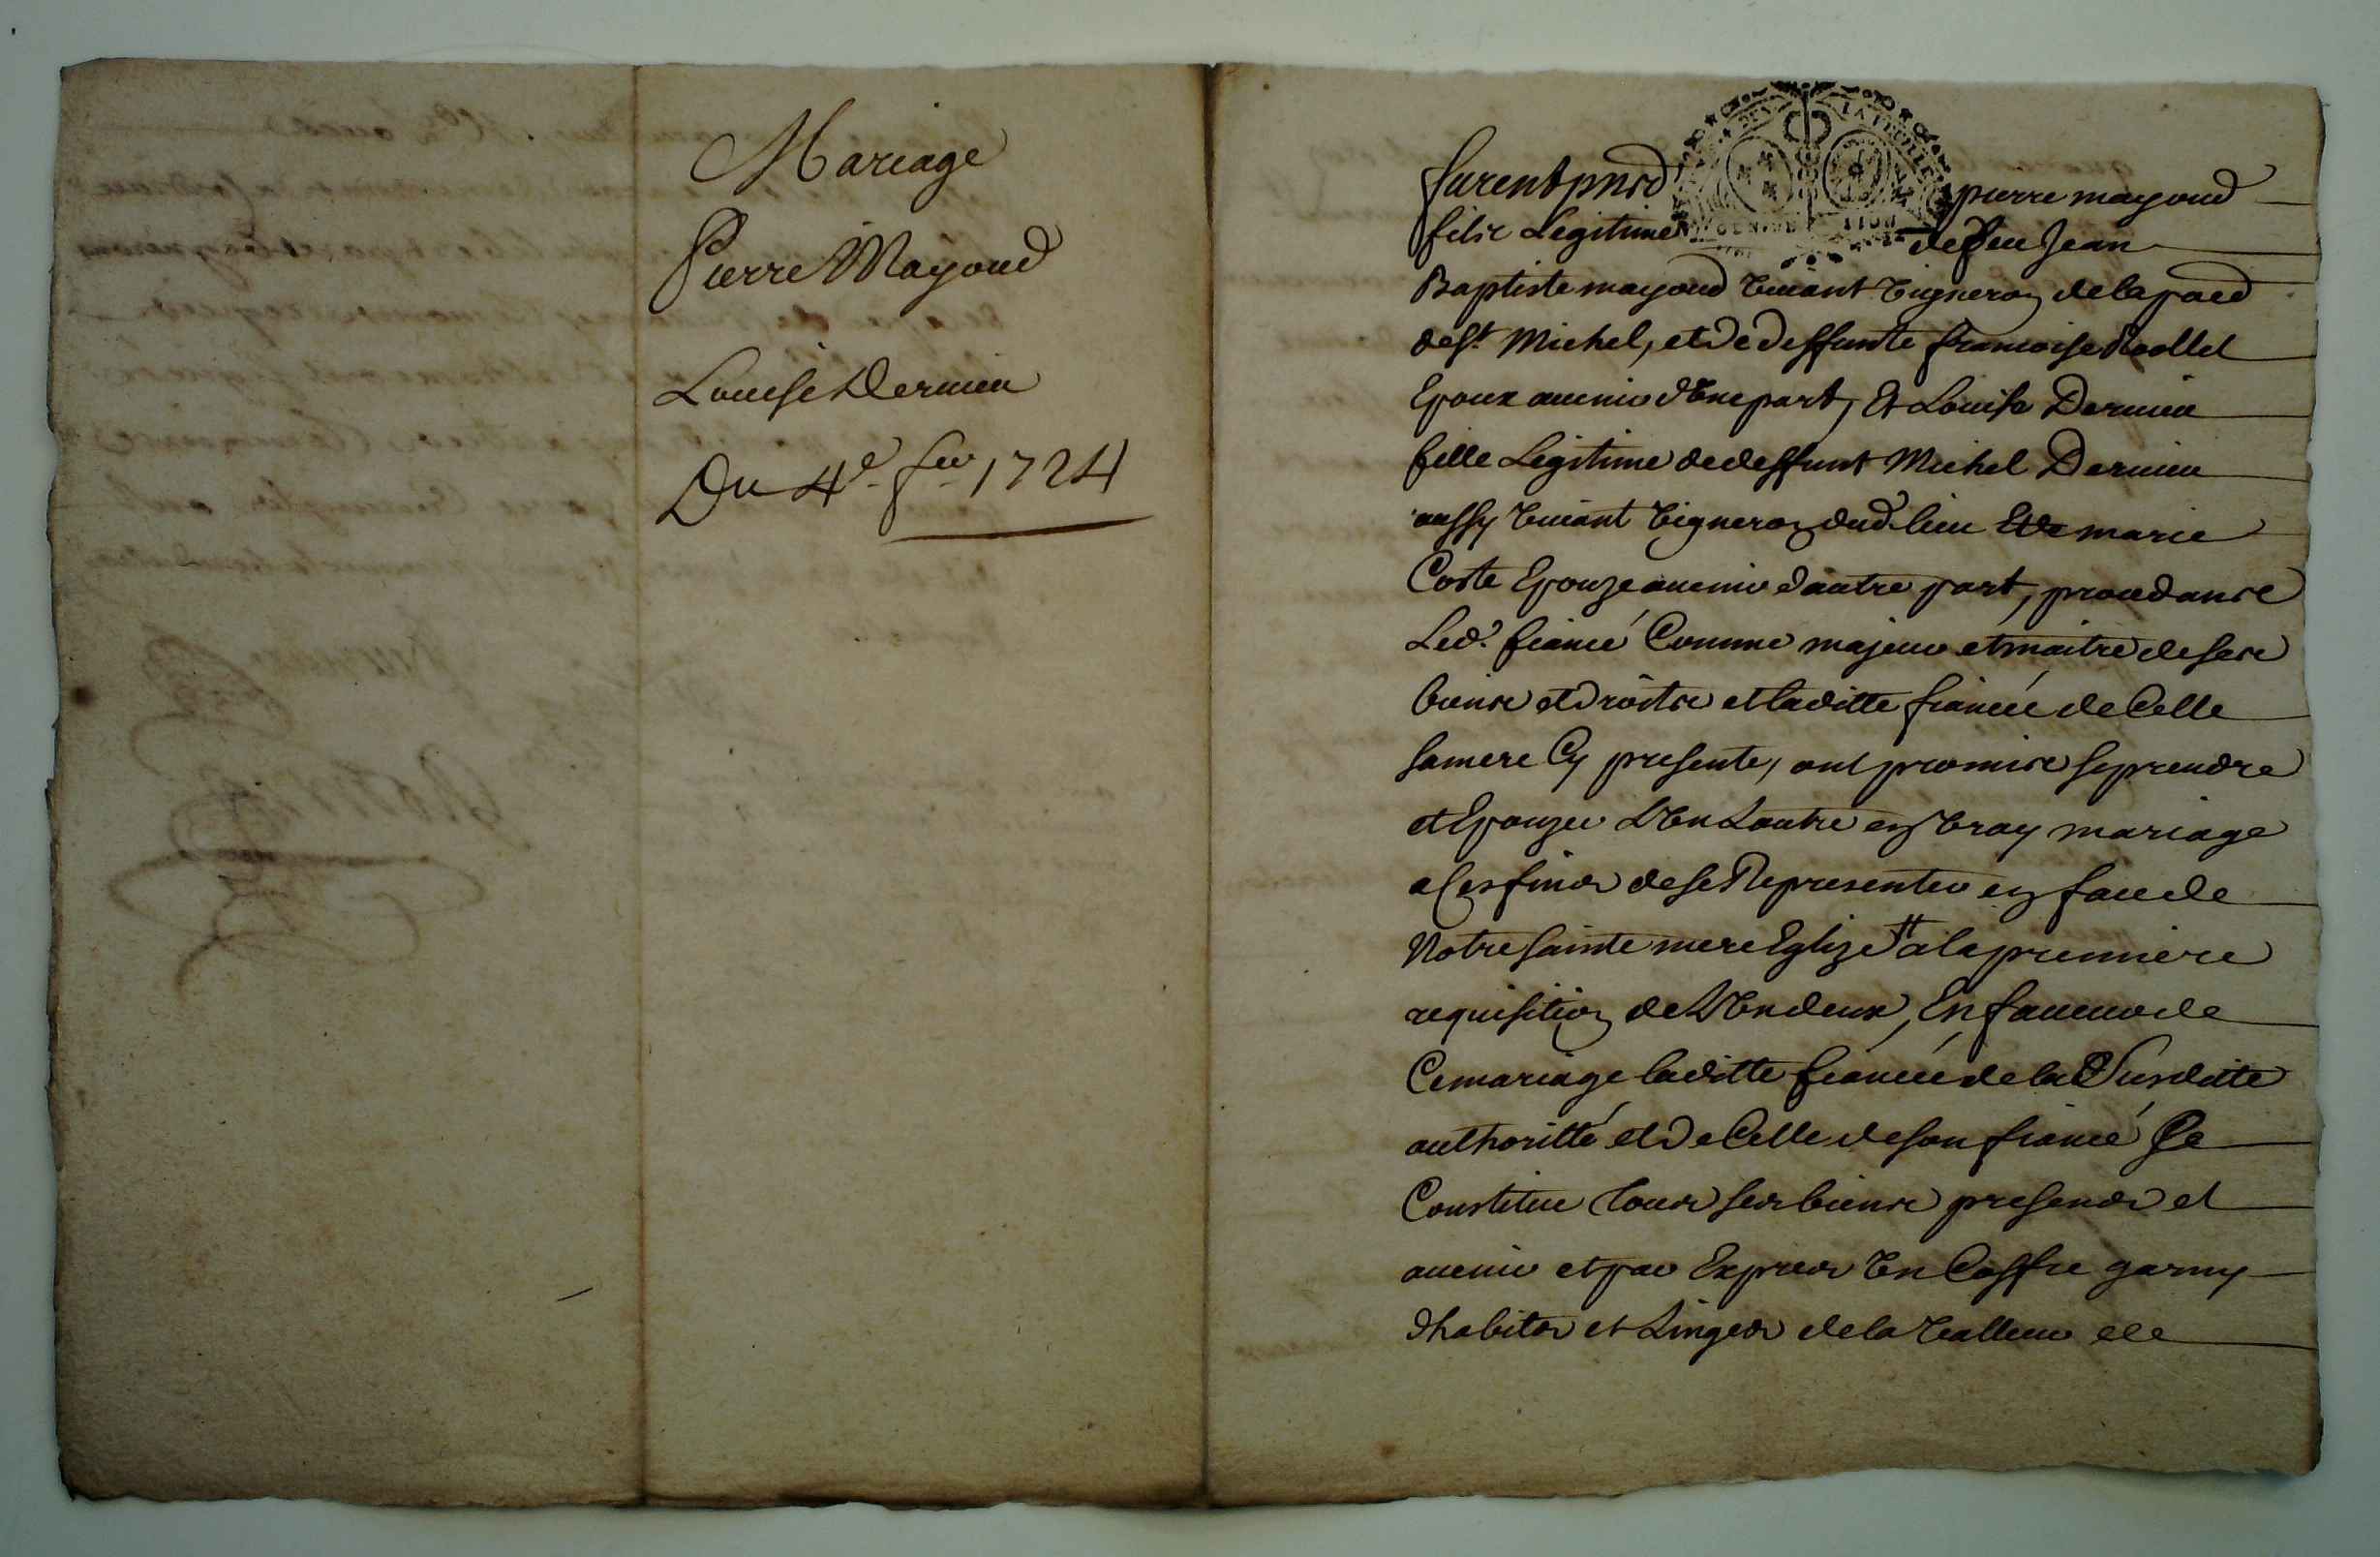 Mariage
Pierre Mayoud
Louise Dervieu
Du 4e. fev 1724
furent pnts pierre mayoud
fils Legitime de feu Jean
Baptiste mayoud vivant vigneron de la parr
de St. Michel, et de deffunte francoise Rollet
Epoux avenir d'une part, Et Louise Dervieu
fille Legitime de deffunt Michel Dervieu
aussy vivant vigneron dud. lieu Et de marie
Coste Epouze avenir dautre part, procedants
Led. fiancé Comme majeur et maitre de ses
biens et droits et laditte fiancée de Celle
sa mere Cy presente, ont promis se prendre
et Epouzer L'un Lautre en vray mariage
a Ces fins de se Representer en face de
Notre sainte mere Eglize a la premiere
requisition de L'un deux, En faveur de
Ce mariage laditte fiancée de la Susditte
authoritté et de Celle de son fiancé Se
Constitue tous ses biens presents et
avenir et par Exprès un Coffre garny
dhabits et Linges de la valleur de